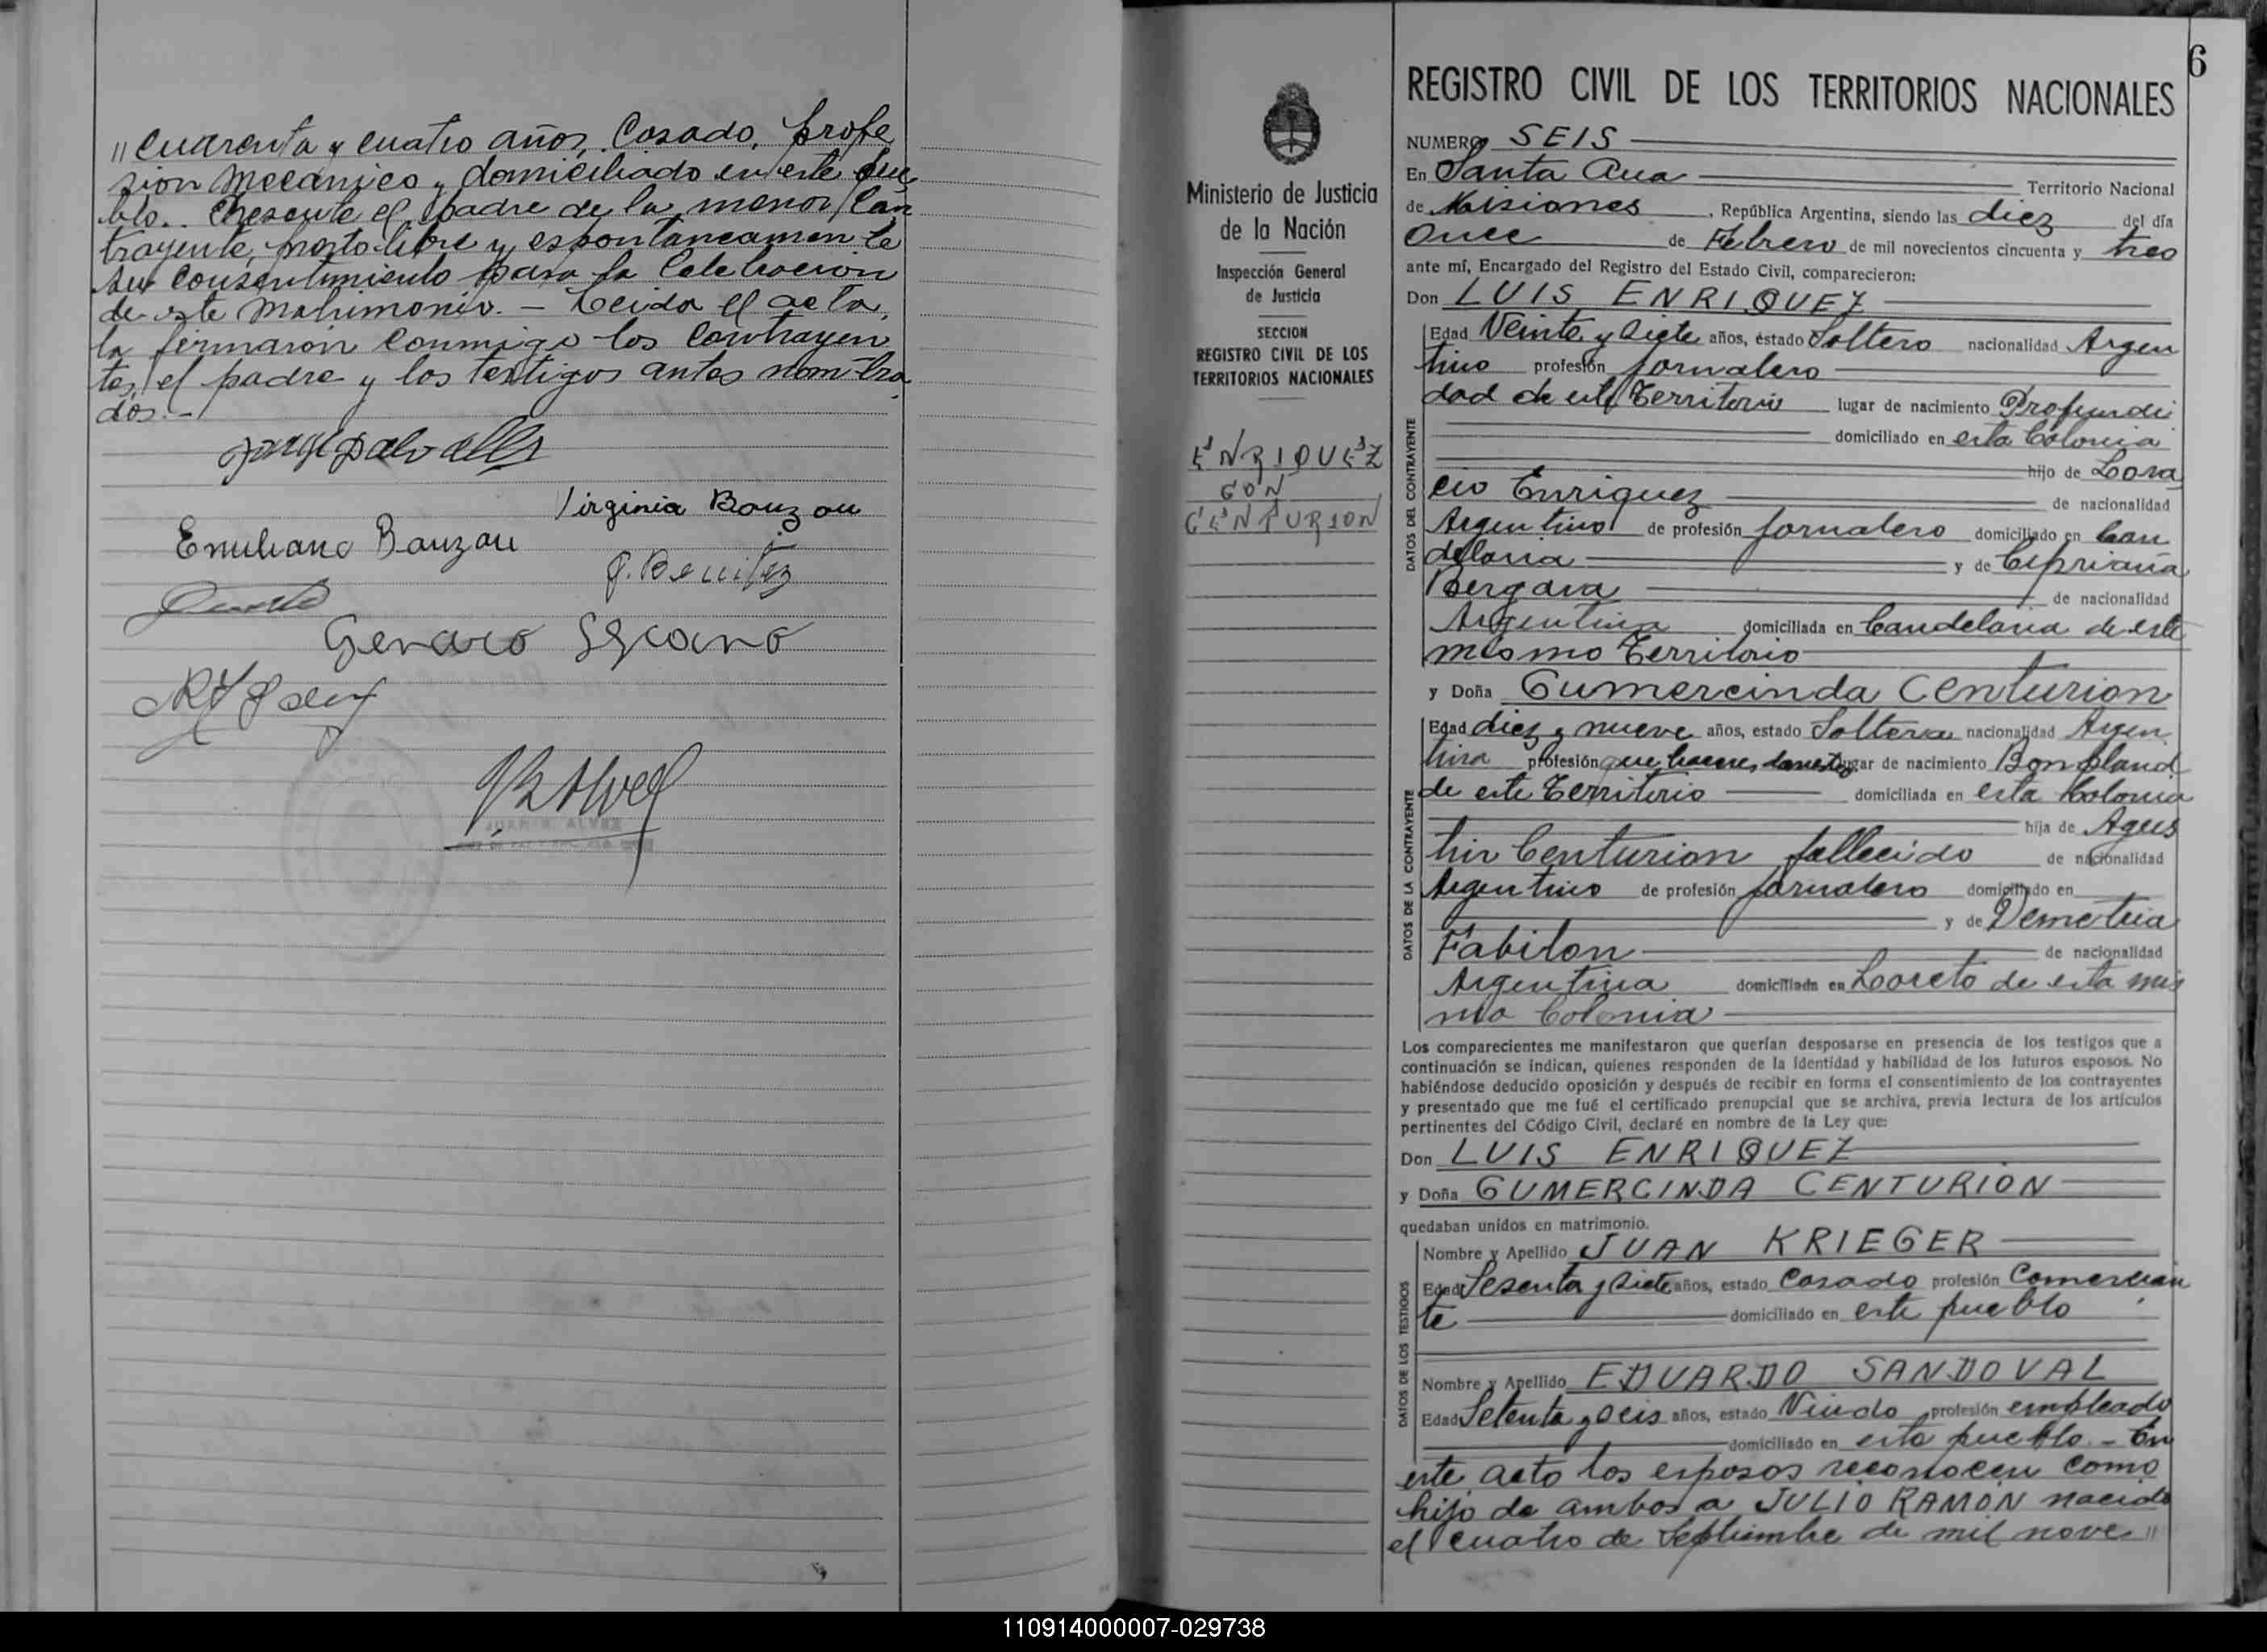 " Cuarenta y cuatro años, Casado, profe
sion Mecanico, domiciliado en este pue
blo.. Presente el padre de la menor Con
trayente, presto libre y espontaneamente
su Consentimiento para la Celebracion
de este Matrimonio. - Leida el acta,
la firmaron conmigo los Contrayen
tes, el padre y los testigos antes nombra
dos.-
Virginia Bauzau
Emiliano Bauzau
J. Benitez
Genaro Lezcano
JUAN B. ALVEZ
6
REGISTRO CIVIL DE LOS TERRITORIOS NACIONALES
Ministerio de Justicia
de la Nación
Inspección General
de Justicia
SECCION
REGISTRO CIVIL DE LOS
TERRITORIOS NACIONALES
ENRIQUEZ
CON
CENTURION
NUMERO SEIS
En Santa Ana Territorio Nacional
de Misiones, República Argentina, siendo las diez del día
Once de Febrero de mil novecientos cincuenta y tres
ante mí, Encargado del Registro del Estado Civil, comparecieron:
Don LUIS ENRIQUEZ
DATOS DEL CONTRAYENTE
Edad Veinte y siete años, estado Soltero nacionalidad Argen
tino profesión Jornalero
dad de este Territorio lugar de nacimiento Profundi
domiciliado en esta Colonia
hijo de Lora
cio Enriquez de nacionalidad
Argentino de profesión Jornalero domiciliado en Can
delaria y de Cipriana
Bergara de nacionalidad
Argentina domiciliada en Candelaria de este
mismo Territorio
y Doña Gumercinda Centurion
DATOS DE LA CONTRAYENTE
Edad diez y nueve años, estado Soltera nacionalidad Argen
tina profesión que haceres domest lugar de nacimiento Bompland
de este Territorio domiciliada en esta Colonia
hija de Agus
tin Centurion fallecido de nacionalidad
Argentino de profesión Jornalero domiciliado en
y de Demetria
Fabilon de nacionalidad
Argentina domiciliada en Loreto de esta mis
ma Colonia
Los comparecientes me manifestaron que querían desposarse en presencia de los testigos que a
continuación se indican, quienes responden de la identidad y habilidad de los futuros esposos. No
habiéndose deducido oposición y después de recibir en forma el consentimiento de los contrayentes
y presentado que me fué el certificado prenupcial que se archiva, previa lectura de los artículos
pertinentes del Código Civil, declaré en nombre de la Ley que:
Don LUIS ENRIQUEZ
y Doña GUMERCINDA CENTURION
quedaban unidos en matrimonio.
DATOS DE LOS TESTIGOS
Nombre y Apellido JUAN KRIEGER
Edad Sesenta y siete años, estado Casado profesión Comercian
te domiciliado en este pueblo
Nombre y Apellido EDUARDO SANDOVAL
Edad Setenta y seis años, estado Viudo profesión empleado
domiciliado en este pueblo. - En
este acto los esposos reconocen como
hijo de ambos a JULIO RAMON nacido
el cuatro de Septiembre de mil nove "
110914000007-029738